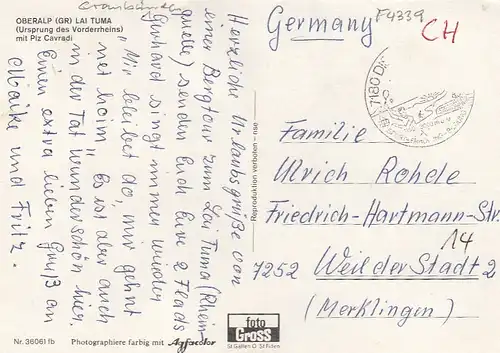 Graubünden
OBERALP (GR) LAI TUMA
(Ursprung des Vorderrheins)
mit Piz Cavradi
Herzliche Urlaubsgrüße von
einer Bergtour zum Lai Tuma (Rhein-
quelle) senden Euch Eure 2 Flads
Gerhard singt immer wieder
"Mir bleibet do, mir gehnt
net hoim". Es ist aber auch
in der Tat wunderschön hier.
Einen extra lieben Gruß an
Maike und Fritz.
Nr. 36061 fb
Photographiere farbig mit Agfacolor
Reproduktion verboten - nse
foto
GROSS
St. Gallen O. St. Fiden
F4339
Germany
CH
7180 DI
Familie
Ulrich Rohde
Friedrich-Hartmann-Str.
14
7252 Weil der Stadt 2
(Merklingen)